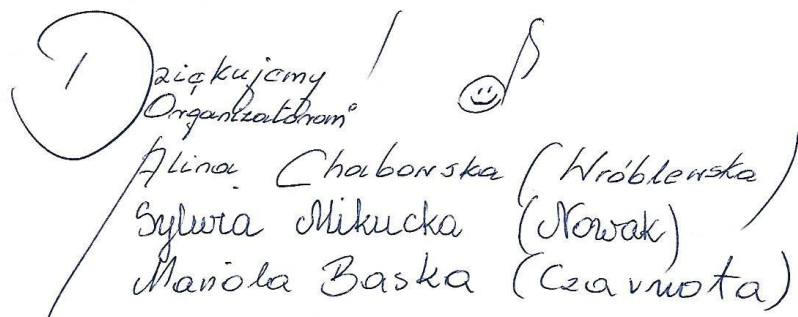 Dziękujemy!
Organizatorom
Alina Chaborska (Wróblewska)
Sylwia Mikucka (Nowak)
Mariola Baska (Czarnota)